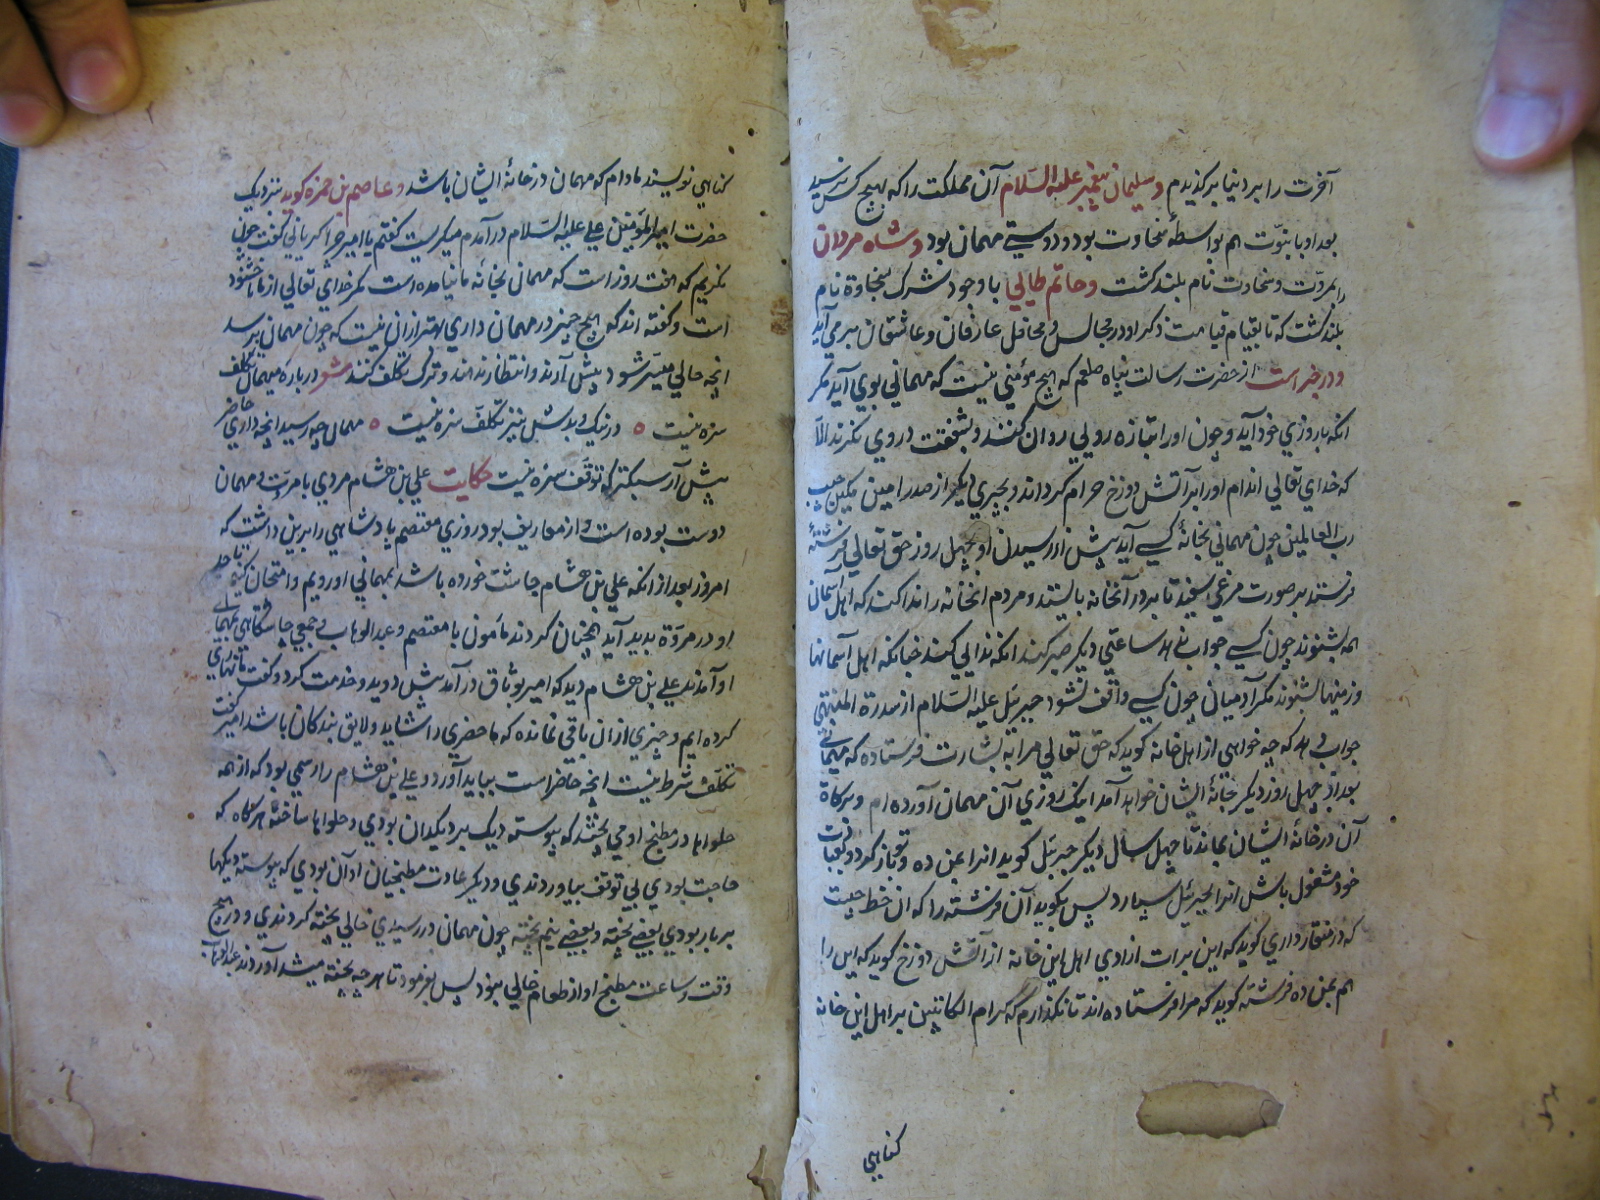 آخرت را بر دنیا برگزیدم و سلیمان پیغمبر علیه السّلام آن مملکت را که بهیچ کس نرسید
بعد او با نبوّت هم بواسطهٔ سخاوت بود و دوستی مهمان بود و شاه مردان
را بمروّت و سخاوت نام بلند کشت و حاتم طایی با وجود شرک بسخاوة نام
بلند کشت که تا بقیام قیامت ذکر او در مجالس و محافل عارفان و عاشقان برمی آید
و در خبر است از حضرت رسالت پناه صلعم که هیچ مؤمنی نیست که مهمانی بوی آید مکر
انکه با روزی خود آید و چون او را بتازه رویی روان کنند و بشفقت در وی نکرند الّا
که خدای تعالی اندام او را بر آتش دوزخ حرام کرداند و بخبری دیکر از صدر امین حبیب
رب العالمین چون مهمانی بخانهٔ کسی آید پیش از رسیدن او بچهل روز حق تعالی فرشتهٔ
فرستد بر صورت مرغی سفید تا بر در آنخانه بایستد و مردم انخانه را ندا کند که اهل آسمان
همه بشنوند چون کسی جواب ندهد ساعتی دیکر صبر کند انکه ندایی کند چنانکه اهل آسمانها
و زمینها بشنوند مکر آدمیان چون کسی واقف نشود جبرئیل علیه السّلام از سدرة المنتهی
جواب دهد که چه خواهی از اهل خانه کوید که حق تعالی مرا به بشارت فرستاده که مهمانی
بعد از چهل روز دیکر بخانهٔ ایشان خواهد آمد اینک روزی آن مهمان آورده ام و برکاة
آن در خانهٔ ایشان بماند تا چهل سال دیکر جبرئیل کوید انرا بمن ده و تو باز کرد و بعبادت
خود مشغول باش انرا بجبرئیل سپارد پس بکوید آن فرشته را که ان خط چیست
که در منقار داری کوید که این برات ازادی اهل این خانه از آتش دوزخ کوید که این را
هم بمن ده فرشته کوید که مرا فرستاده اند تا نکذارم که کرام الکاتبین بر اهل این خانه
کناهی
کناهی نویسند مادام که مهمان در خانهٔ ایشان باشد و عاصم بن حمزه کوید بنزدیک
حضرت امیر المؤمنین علی علیه السّلام درآمدم میکریست کفتم یا امیر چرا کریانی کفت چون
نکریم که هفت روز است که مهمانی بخانه ما نیامده است مکر خدای تعالی از ما ناخشنود
است و کفته اند که هیچ چیز در مهمان داری بهتر از ان نیست که چون مهمان برسد
انچه حالی میسّر شود پیش آرند و انتظار ندهند و ترک تکلف کنند شعر در باره مهمان تکلف
سره نیست ه در نیک و بدش نیز تکلّف سره نیست ه مهمان چو رسید انچه داری حاضر
پیش آر سبکتر که توقف سره نیست حکایت علی بن هشام مردی با مروّت و مهمان
دوست بوده است و از معاریف بود روزی معتصم پادشاهی را برین داشت که
امروز بعد از انکه علی بن هشام چاشت خورده باشد بمهمانی او رویم و امتحان کنیم تا چه
او در مروّة بدید آید همچنان کردند مامون با معتصم و عبد الوهاب و جمعی چاشتکاهی بمهمانی
او آمدند علی بن هشام دید که امیر بوثاق درآمد پیش دوید و خدمت کرد و کفت
کرده ایم و چیزی از ان باقی نمانده که ما حضری را شاید و لایق بندکان باشد امیر کفت
تکلّف شرط نیست انچه حاضر است بباید آورد و علی بن هشام را رسمی بود که از همه
حلواها در مطبخ او می پختند که پیوسته دیک بر دیکدان بودی و حلواها ساخته هرکاه که
حاجت بودی بی توقف بیاوردندی و دیکر عادت مطبخیان او آن بودی که پیوسته دیکها
بر بار بودی بعضی پخته و بعضی نیم پخته چون مهمان در رسیدی حالی پخته کردندی و در هیچ
وقت و ساعت مطبخ او از طعام خالی نبود پس بفرمود تا هر چه پخته میشد آوردند عبد الوهاب